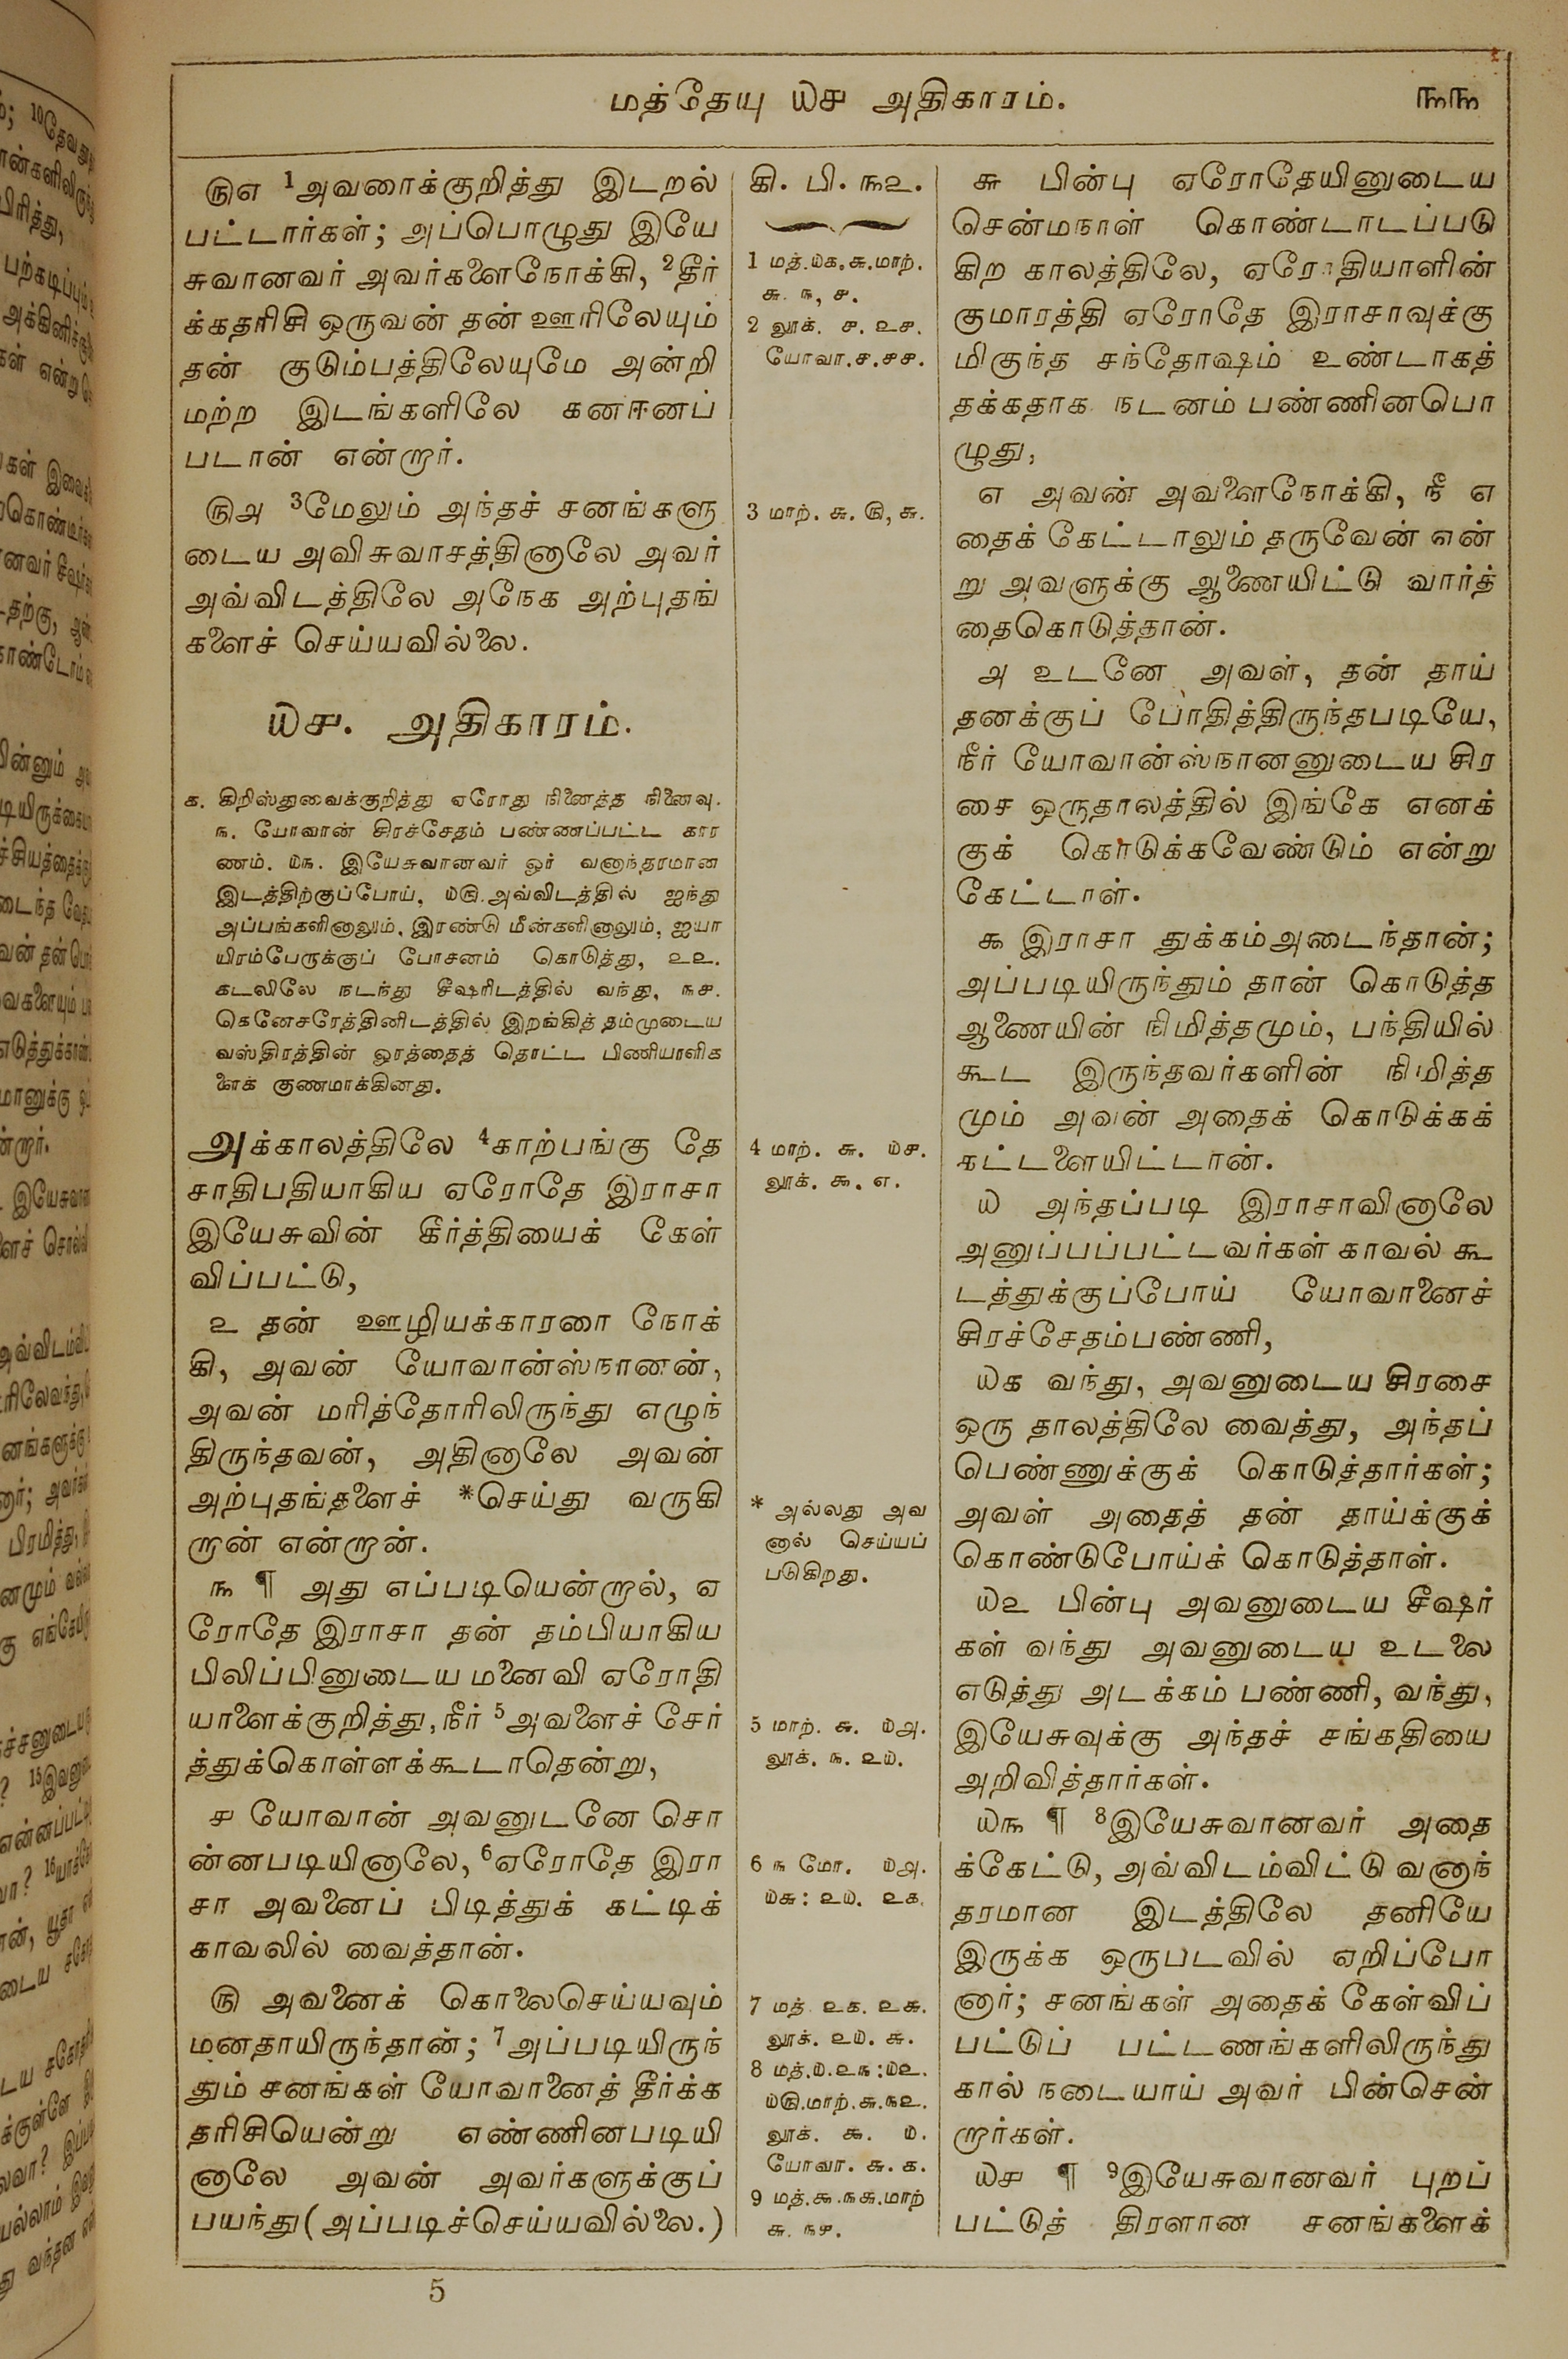 மத்தேயு ௰௪ அதிகாரம்.
௩௩
௫௭ 1அவரைக்குறித்து இடறல்
பட்டார்கள்; அப்பொழுது இயே
சுவானவர் அவர்களைநோக்கி, 2தீர்
க்கதரிசி ஒருவன் தன் ஊரிலேயும்
தன் குடும்பத்திலேயுமே அன்றி
மற்ற இடங்களிலே கனஈனப்
படான் என்றார்.
௫௮ 3மேலும் அந்தச் சனங்களு
டைய அவிசுவாசத்தினாலே அவர்
அவ்விடத்திலே அநேக அற்புதங்
களைச் செய்யவில்லை.
௰௪. அதிகாரம்.
௧. கிறிஸ்துவைக்குறித்து ஏரோது நினைத்த நினைவு.
௩. யோவான் சிரச்சேதம் பண்ணப்பட்ட கார
ணம். ௰௩. இயேசுவானவர் ஓர் வனாந்தரமான
இடத்திற்குப்போய், ௰௫. அவ்விடத்தில் ஐந்து
அப்பங்களினாலும், இரண்டு மீன்களினாலும், ஐயா
யிரம்பேருக்குப் போசனம் கொடுத்து, ௨௨.
கடலிலே நடந்து சீஷரிடத்தில் வந்து, ௩௪.
கெனேசரேத்தினிடத்தில் இறங்கித் தம்முடைய
வஸ்திரத்தின் ஓரத்தைத் தொட்ட பிணியாளிக
ளைக் குணமாக்கினது.
அக்காலத்திலே 4காற்பங்கு தே
சாதிபதியாகிய ஏரோதே இராசா
இயேசுவின் கீர்த்தியைக் கேள்
விப்பட்டு,
௨ தன் ஊழியக்காரரை நோக்
கி, அவன் யோவான்ஸ்நானன்,
அவன் மரித்தோரிலிருந்து எழுந்
திருந்தவன், அதினாலே அவன்
அற்புதங்தளைச் *செய்து வருகி
றான் என்றான்.
௩ ¶ அது எப்படியென்றால், ஏ
ரோதே இராசா தன் தம்பியாகிய
பிலிப்பினுடைய மனைவி ஏரோதி
யாளைக்குறித்து, நீர் 5அவளைச் சேர்
த்துக்கொள்ளக்கூடாதென்று,
௪ யோவான் அவனுடனே சொ
ன்னபடியினாலே, 6ஏரோதே இரா
சா அவனைப் பிடித்துக் கட்டிக்
காவலில் வைத்தான்.
௫ அவனைக் கொலைசெய்யவும்
மனதாயிருந்தான்; 7அப்படியிருந்
தும் சனங்கள் யோவானைத் தீர்க்க
தரிசியென்று எண்ணினபடியி
னாலே அவன் அவர்களுக்குப்
பயந்து (அப்படிச்செய்யவில்லை.)
கி. பி. ௩௨.
1 மத்.௰௧.௬.மாற்.
௬. ௩, ௪.
2 லூக். ௪. ௨௪.
யோவா.௪.௪௪.
3 மாற். ௬. ௫, ௬.
4 மாற். ௬. ௰௪.
லூக். ௯. ௭.
* அல்லது அவ
னால் செய்யப்
படுகிறது.
5 மாற். ௬. ௰௮.
லூக். ௩. ௨௰.
6 ௩ மோ. ௰௮.
௰௬: ௨௰. ௨௧.
7 மத் ௨௧. ௨௬.
லூக். ௨௰. ௬.
8 மத்.௰.௨௩:௰௨.
௰௫.மாற்.௬.௩௨.
லூக். ௯. ௰.
யோவா. ௬. ௧.
9 மத்.௯.௩௬.மாற்
௬. ௩௪.
௬ பின்பு ஏரோதேயினுடைய
சென்மநாள் கொண்டாடப்படு
கிற காலத்திலே, ஏரோதியாளின்
குமாரத்தி ஏரோதே இராசாவுக்கு
மிகுந்த சந்தோஷம் உண்டாகத்
தக்கதாக நடனம் பண்ணினபொ
ழுது,
௭ அவன் அவளைநோக்கி, நீ எ
தைக் கேட்டாலும் தருவேன் என்
று அவளுக்கு ஆணையிட்டு வார்த்
தைகொடுத்தான்.
௮ உடனே அவள், தன் தாய்
தனக்குப் போதித்திருந்தபடியே,
நீர் யோவான்ஸ்நானனுடைய சிர
சை ஒருதாலத்தில் இங்கே எனக்
குக் கொடுக்கவேண்டும் என்று
கேட்டாள்.
௯ இராசா துக்கம்அடைந்தான்;
அப்படியிருந்தும் தான் கொடுத்த
ஆணையின் நிமித்தமும், பந்தியில்
கூட இருந்தவர்களின் நிமித்த
மும் அவன் அதைக் கொடுக்கக்
கட்டளையிட்டான்.
௰ அந்தப்படி இராசாவினாலே
அனுப்பப்பட்டவர்கள் காவல் கூ
டத்துக்குப்போய் யோவானைச்
சிரச்சேதம்பண்ணி,
௰௧ வந்து, அவனுடைய சிரசை
ஒரு தாலத்திலே வைத்து, அந்தப்
பெண்ணுக்குக் கொடுத்தார்கள்;
அவள் அதைத் தன் தாய்க்குக்
கொண்டுபோய்க் கொடுத்தாள்.
௰௨ பின்பு அவனுடைய சீஷர்
கள் வந்து அவனுடைய உடலை
எடுத்து அடக்கம் பண்ணி, வந்து,
இயேசுவுக்கு அந்தச் சங்கதியை
அறிவித்தார்கள்.
௰௩ ¶ 8இயேசுவானவர் அதை
க்கேட்டு, அவ்விடம்விட்டு வனாந்
தரமான இடத்திலே தனியே
இருக்க ஒருபடவில் ஏறிப்போ
னார்; சனங்கள் அதைக் கேள்விப்
பட்டுப் பட்டணங்களிலிருந்து
கால் நடையாய் அவர் பின்சென்
றார்கள்.
௰௪ ¶ 9இயேசுவானவர் புறப்
பட்டுத் திரளான சனங்களைக்
5